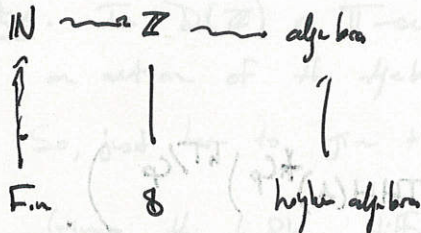 ℕ ⇝ ℤ ⇝ algebra
Fin 𝕊 higher algebra